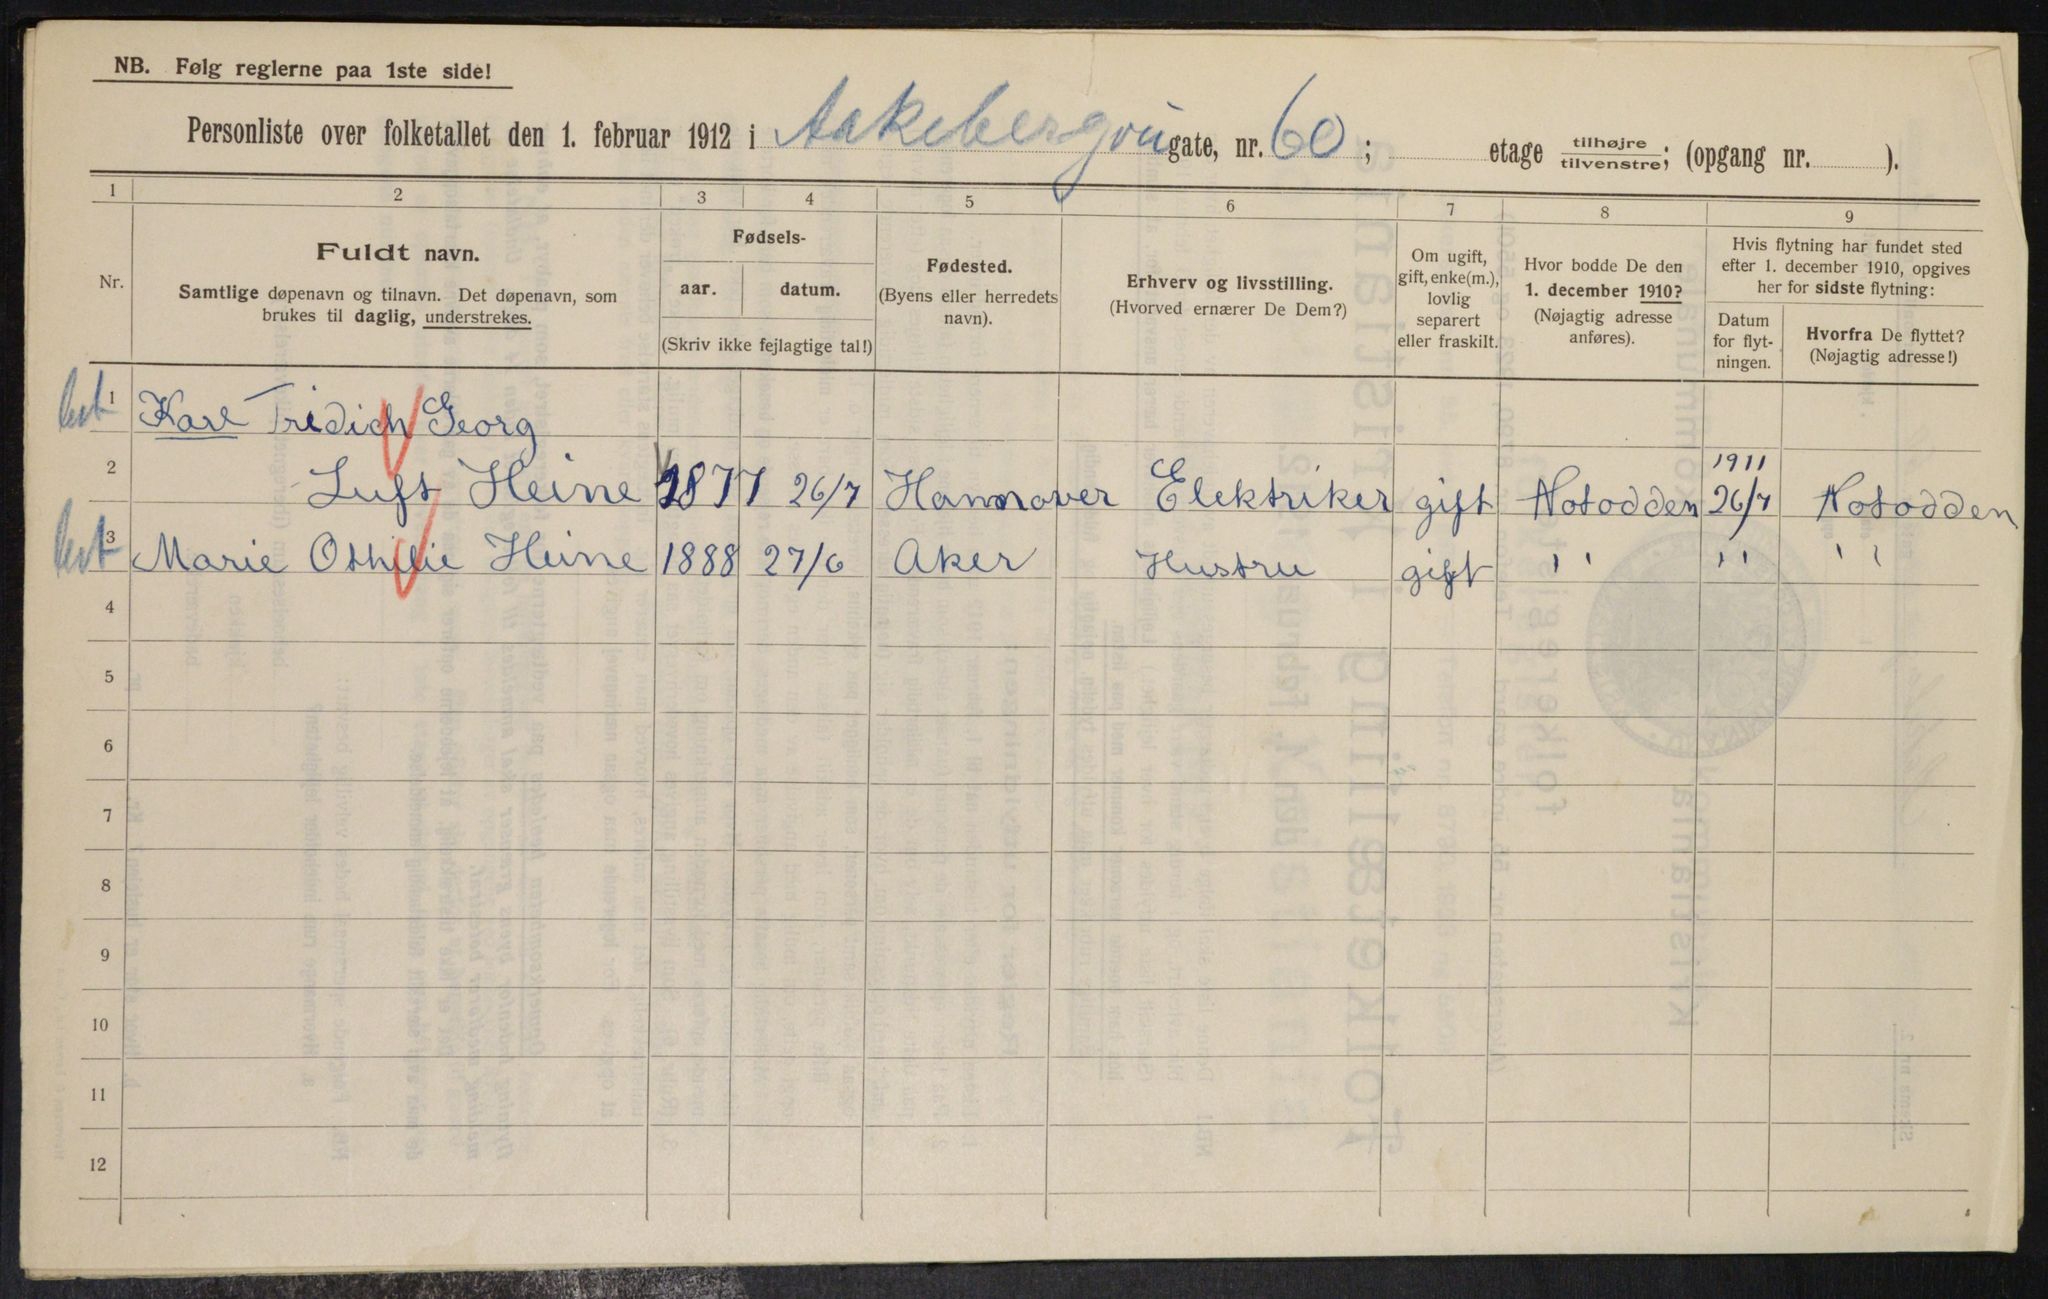 NB. Følg reglerne paa 1ste side!
Personliste over folketallet den 1. februar 1912 i Aakebergveigate, nr. 60; etage tilhøjre/tilvenstre; (opgang nr. ).
1 2 3 4 5 6 7 8 9
Nr.
Fuldt navn.
Samtlige døpenavn og tilnavn. Det døpenavn, som
brukes til daglig, understrekes.
Fødsels-
aar. datum.
(Skriv ikke fejlagtige tal!)
Fødested.
(Byens eller herredets
navn).
Erhverv og livsstilling.
(Hvorved ernærer De Dem?)
Om ugift,
gift, enke(m.),
lovlig
separert
eller fraskilt.
Hvor bodde De den
1. december 1910?
(Nøjagtig adresse
anføres).
Hvis flytning har fundet sted
efter 1. december 1910, opgives
her for sidste flytning:
Datum
for flyt-
ningen.
Hvorfra De flyttet?
(Nøjagtig adresse!)
1 Karl Fridich Georg
2 Luft Heine 1877 26/7 Hannover Elektriker gift Notodden 1911 26/7 Notodden
3 Marie Othilie Heine 1888 27/6 Aker Hustru gift " " "
4
5
6
7
8
9
10
11
12